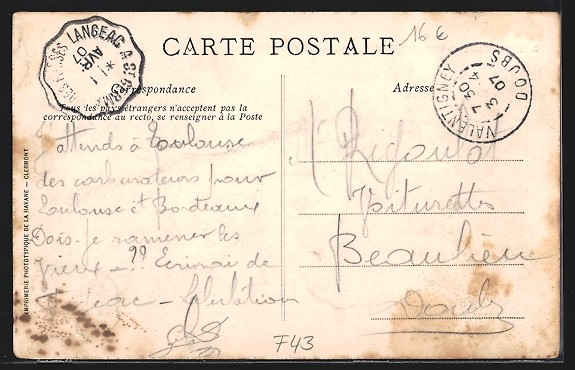 CARTE POSTALE
16 €
LANGEAC A ST GERMAIN
1
AVR
07
VALENTIGNEY
DOUBS
3
07
Correspondance
Adresse
Tous les pays étrangers n'acceptent pas la
correspondance au recto, se renseigner à la Poste
J'attends à Toulouse
des carburateurs pour
Toulouse et Bordeaux
Dois-je ramener les
vieux - ?? Ecrirai de
- Salutation
Mr Rigoulot
Voiturettes
Beaulieu
Doubs
F43
IMPRIMERIE PHOTOTYPIQUE DE LA HAVANE — CLERMONT